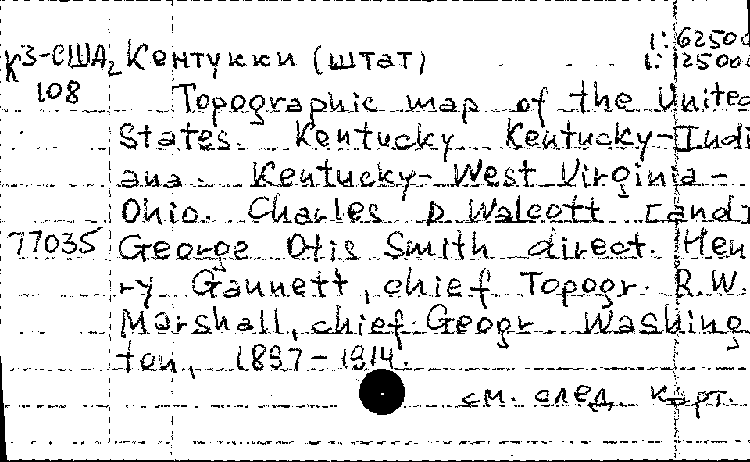 1:62500
К3-США₂ Кентукки (штат) 1:125000
108 Topographic map of the United
States. Kentucky Kentucky-Indi
ana. Kentucky-West Virginia-
Ohio. Charles D. Walcott [and]
77035 George Otis Smith direct. Hen
ry Gannett, chief Topogr. R.W.
Marshall, chief Geogr. Washing
ton, 1897-1914.
см. след. карт.